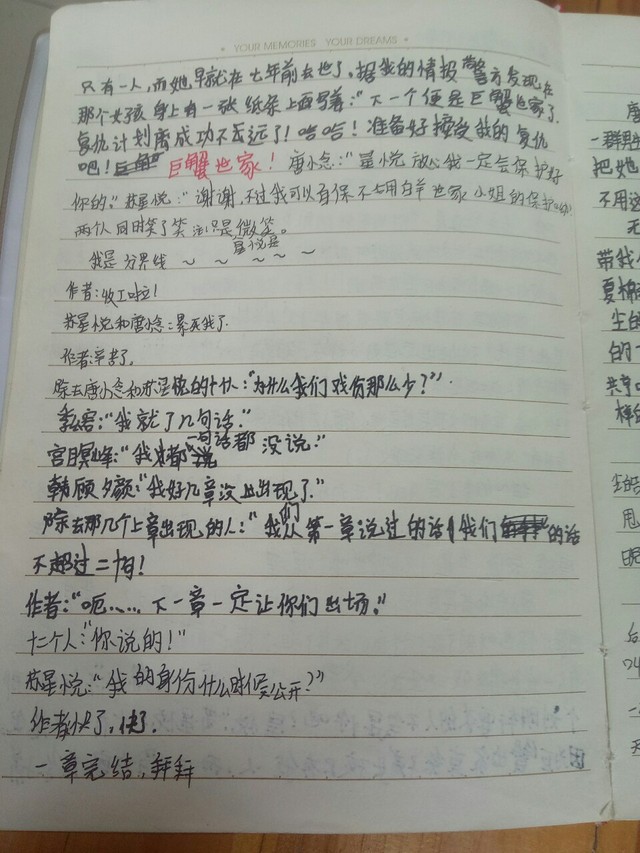 YOUR MEMORIES YOUR DREAMS
只有一人,而她早就在七年前去世了,据我的情报警方发现在
那个女孩身上有一张纸条上面写着:"下一个便是巨蟹世家了.
复仇计划离成功不丢远了!哈哈!准备好接受我的复仇
吧!巨蟹世家!唐小念:"星悦放心我一定会保护好
你的。"苏星悦:"谢谢,不过我可以自保不用白羊世家小姐的保护
两个人同时笑了笑 星悦是只是微笑。
我是分界线~ ~ ~ ~ ~
作者:收工啦!
苏星悦和唐小念:累死我了.
作者:辛苦了.
除去唐小念和苏星悦的十个人:"为什么我们戏份那么少?"
:"我就了几句话."
宫瞑峰:"我一句话都没说."
韩顾夕颜:"我好几章没上出现了."
除去那几个上章出现的人:"我们从第一章说过的话,我们的话
不超过二句!
作者:"呃……下一章一定让你们出场。"
十二个人:"你说的!"
苏星悦:"我的身份什么时候公开?"
作者快了,快了.
一章完结,拜拜